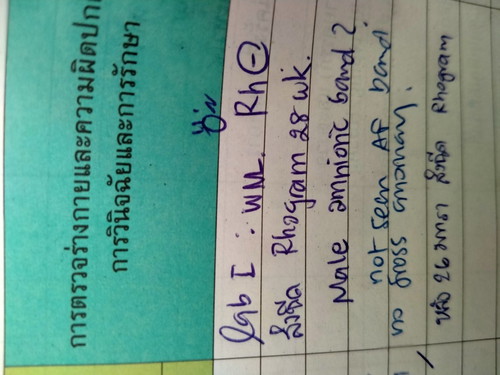 การตรวจร่างกายและความผิดปก
การวินิจฉัยและการรักษา
Lab I : WNL. Rh⊖
สั่งฉีด Rhogram 28 wk.
Male amnionic band ?
not seen AF band
no gross anomaly.
หลัง 26 มกรา สั่งฉีด Rhogram